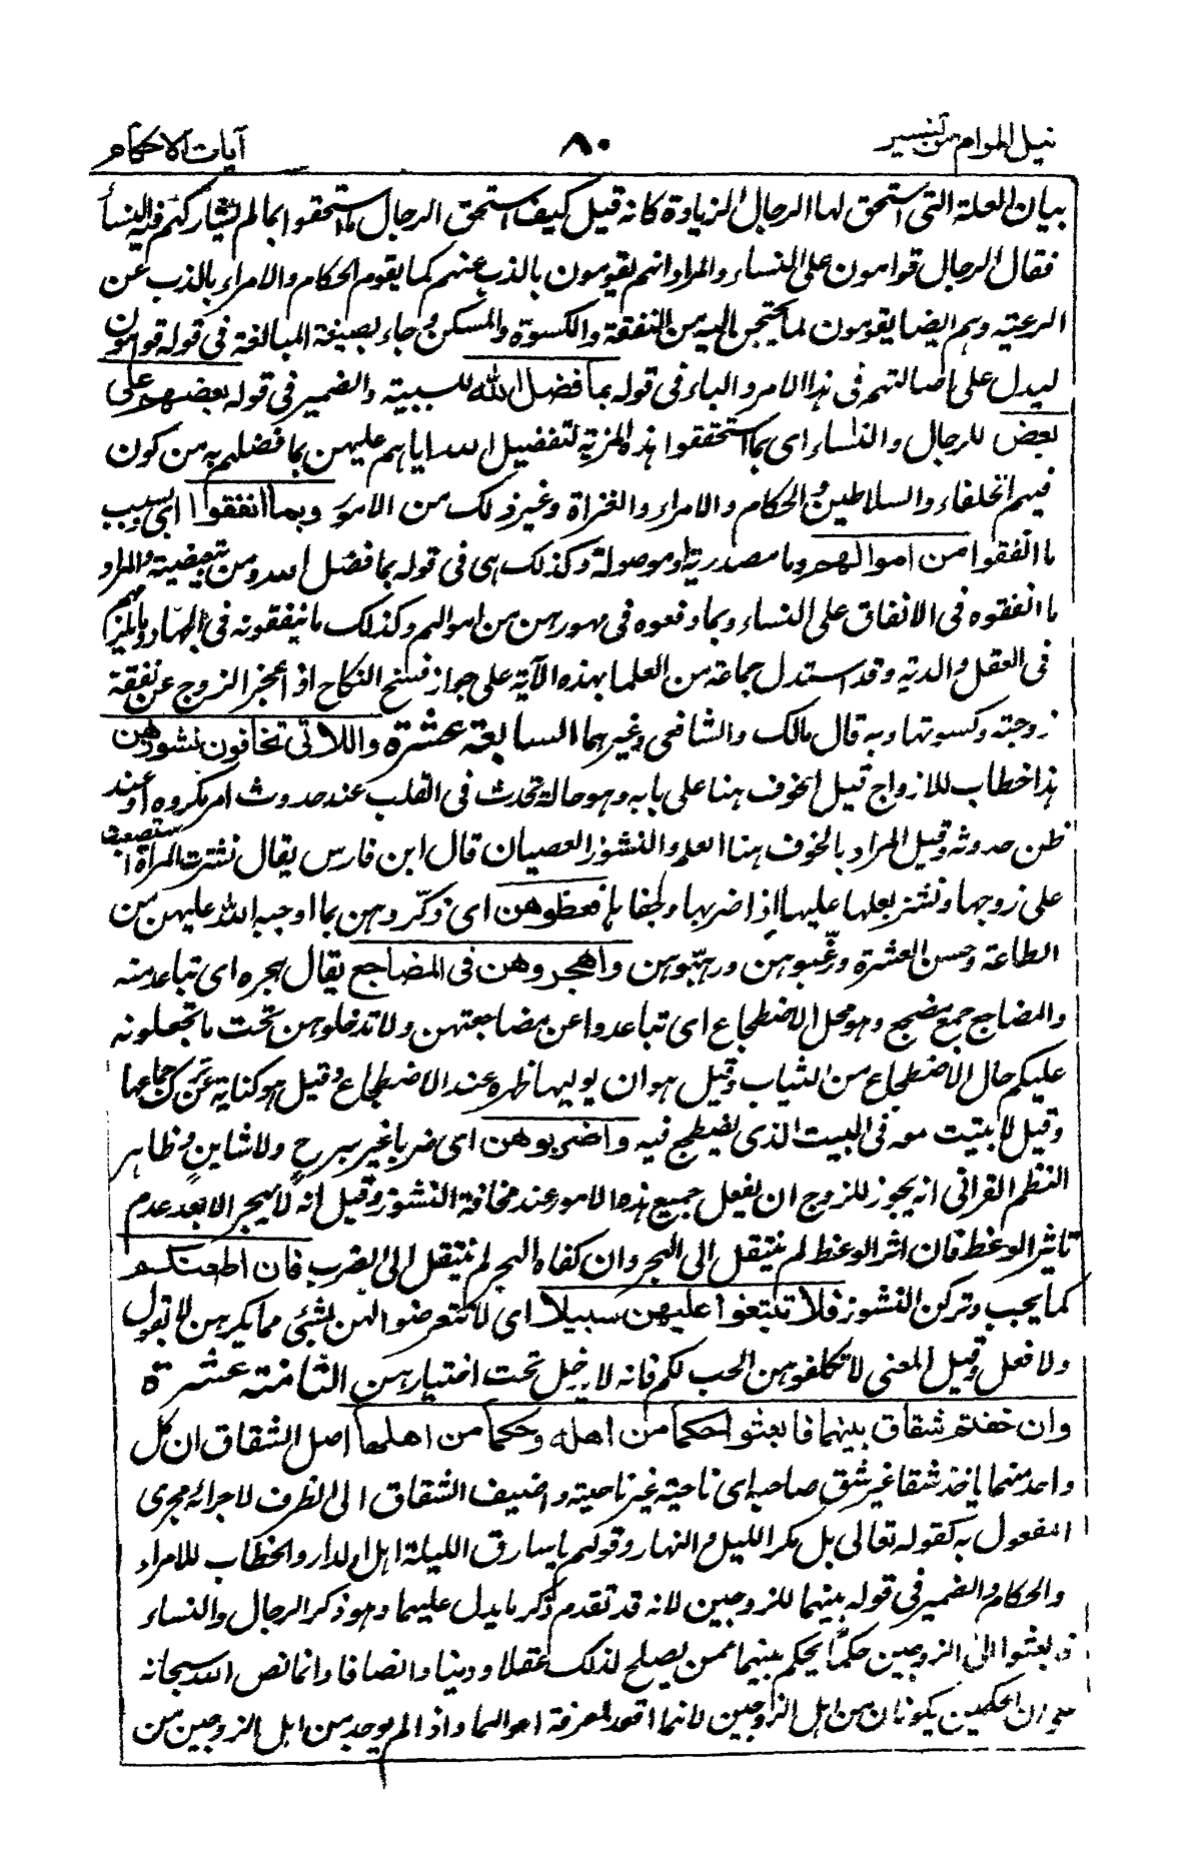 نيل المرام من تفسير
٨٠
آيات الاحكام
بيان العلة التى استحق لها الرجال الزيادة كانه قيل كيف استحق الرجال ما استحقوا بما لم تشاركهم فيه النساء
فقال الرجال قوامون على النساء والمراد انهم يقومون بالذب عنهم كما يقوم الحكام والامراء بالذب عن
الرعية وهم ايضا يقومون لما يحتجن اليه من النفقة والكسوة والمسكن وجاء بصيغة المبالغة فى قوله قوامون
ليدل على اصالتهم فى هذا الامر والباء فى قوله بما فضل الله للسببية والضمير فى قوله بعضهم على
بعض للرجال والنساء اى بما استحققوا هذه المزية لتفضيل الله اياهم عليهن بما فضلهم به من كون
فيهم الخلفاء والسلاطين والحكام والامراء والغزاة وغير ذلك من الامور وبما انفقوا اى بسبب
ما انفقوا من اموالهم وما مصدرية او موصولة وكذلك هى فى قوله بما فضل الله ومن تبعيضية والمراد
ما انفقوه فى الانفاق على النساء وبما دفعوه فى مهورهن من اموالهم وكذلك ما ينفقونه فى الجهاد وما يلزمهم
فى العقل والدية وقد استدل جماعة من العلما بهذه الآية على جواز فسخ النكاح اذا عجز الزوج عن نفقة
زوجته وكسوتها وبه قال مالك والشافعى وغيرهما السابعة عشرة واللاتى تخافون نشوزهن
هذا خطاب للازواج قيل الخوف هنا على بابه وهو حالة تحدث فى القلب عند حدوث امر مكروه او عند
ظن حدوثه وقيل المراد بالخوف هنا العلم والنشوز العصيان قال ابن فارس يقال نشزت المرأة استصعبت
على زوجها ونشز بعلها عليها اذا ضربها وجفاها فعظوهن اى ذكّروهن بما اوجبه الله عليهن من
الطاعة وحسن العشرة ورغّبوهن ورهّبوهن واهجروهن فى المضاجع يقال هجره اى تباعد منه
والمضاجع جمع مضجع وهو محل الاضطجاع اى تباعدوا عن مضاجعتهن ولا تدخلوهن تحت ما تجعلونه
عليكم حال الاضطجاع من الثياب وقيل هو ان يوليها ظهره عند الاضطجاع وقيل هو كناية عن ترك جماعها
وقيل لا يبيت معه فى البيت الذى يضطجع فيه واضربوهن اى ضربا غير مبرحٍ ولا شاينٍ وظاهر
النظم القرانى انه يجوز للزوج ان يفعل جميع هذه الامور عند مخافة النشوز وقيل انه لا يهجر الا بعد عدم
تاثير الوعظ فان اثر الوعظ لم ينتقل الى الهجر وان كفاه الهجر لم ينتقل الى الضرب فان اطعنكم
كما يجب وتركن النشوز فلا تبتغوا عليهن سبيلا اى لا تتعرضوا لهن بشئى مما يكرهن لا بقول
ولا فعل وقيل المعنى لا تكلفوهن الحب لكم فانه لا يدخل تحت اختيارهن الثامنة عشرة
وان خفتم شقاق بينهما فابعثوا حكما من اهله وحكما من اهلها اصل الشقاق ان كل
واحد منهما ياخذ شقا غير شق صاحبه اى ناحية غير ناحيته واضيف الشقاق الى الظرف لاجرائه مجرى
المفعول به كقوله تعالى بل مكر الليل والنهار وقولهم يا سارق الليلة اهل الدار والخطاب للامراء
والحكام والضمير فى قوله بينهما للزوجين لانه قد تقدم ذكر ما يدل عليهما وهو ذكر الرجال والنساء
فابعثوا الى الزوجين حكمًا يحكم بينهما ممن يصلح لذلك عقلا ودينا وانصافا وانما نص الله سبحانه
على ان الحكمين يكونان من اهل الزوجين لانهما اقعد لمعرفة احوالهما واذا لم يوجد من اهل الزوجين من